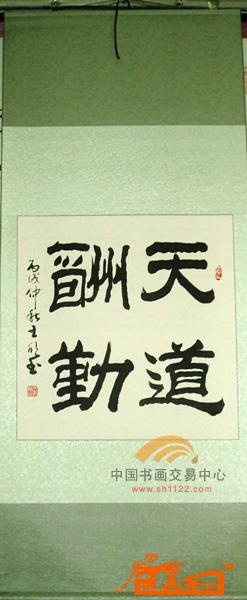 天道
酬勤
丙戌仲秋
中国书画交易中心
www.sh1122.com